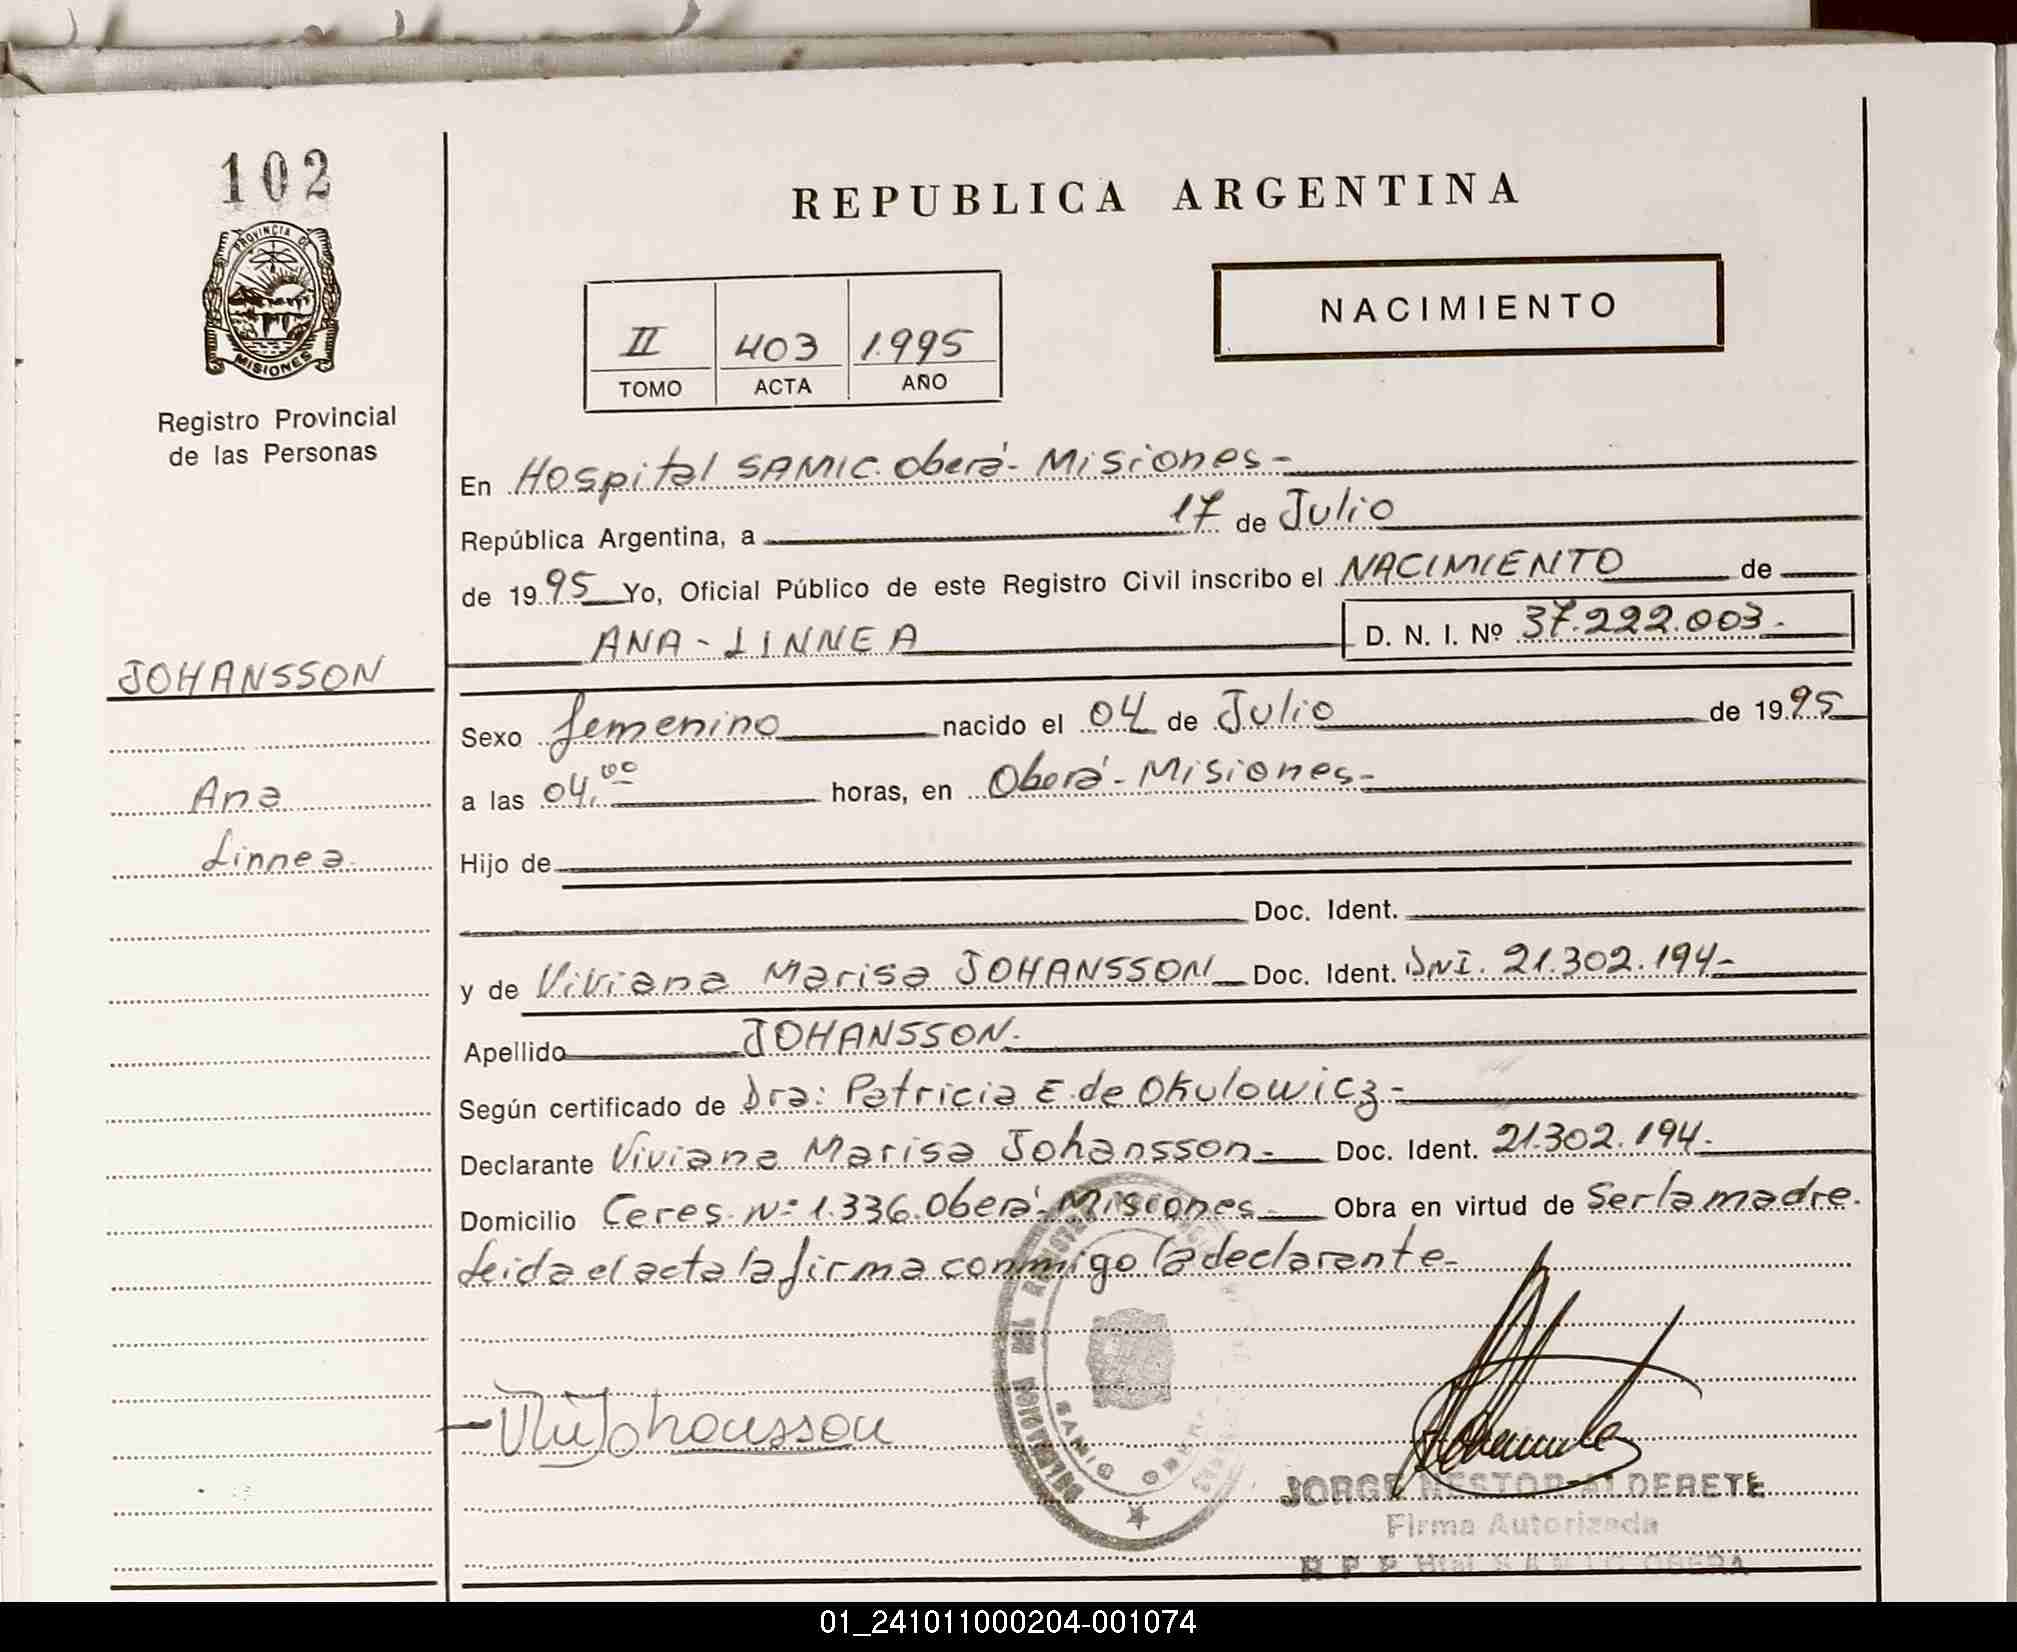 102
PROVINCIA DE
MISIONES
Registro Provincial
de las Personas
REPUBLICA ARGENTINA
NACIMIENTO
II 403 1995
TOMO ACTA AÑO
En Hospital SAMIC. Oberá - Misiones -
República Argentina, a 17 de Julio
de 1995 Yo, Oficial Público de este Registro Civil inscribo el NACIMIENTO de
ANA - LINNEA D. N. I. Nº 37.222.003.-
JOHANSSON
Sexo femenino nacido el 04 de Julio de 1995
Ana
a las 04,00 horas, en Oberá - Misiones.-
Linnea.
Hijo de
Doc. Ident.
y de Viviana Marisa JOHANSSON Doc. Ident. DNI. 21.302.194-
Apellido JOHANSSON.
Según certificado de Dra: Patricia E. de Okulowicz -
Declarante Viviana Marisa Johansson.- Doc. Ident. 21.302.194.
Domicilio Ceres. Nº 1.336. Oberá - Misiones.- Obra en virtud de Ser la madre.
Leida el acta la firma conmigo la declarante-
JORGE NESTOR ALDERETE
Firma Autorizada
R P P Htal S A M I C OBERA
01_241011000204-001074